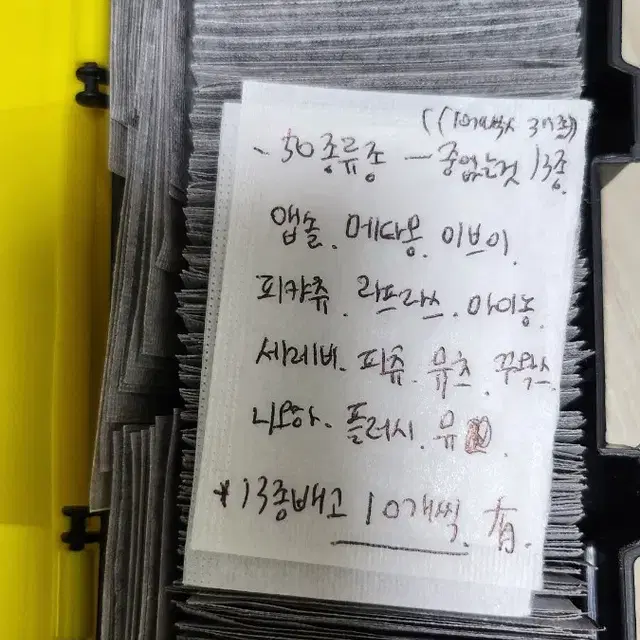 ((10개씩 37종)
- 50종류중 - 중 없는것 13종
앱솔. 메타몽. 이브이.
피카츄. 라프라스. 마이농.
세레비. 피츄. 뮤츠. 꾸왁스.
나오하. 플러시. 뮤
* 13종빼고 10개씩. 有.